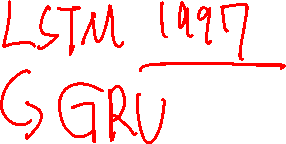 LSTM 1997
↳ GRU